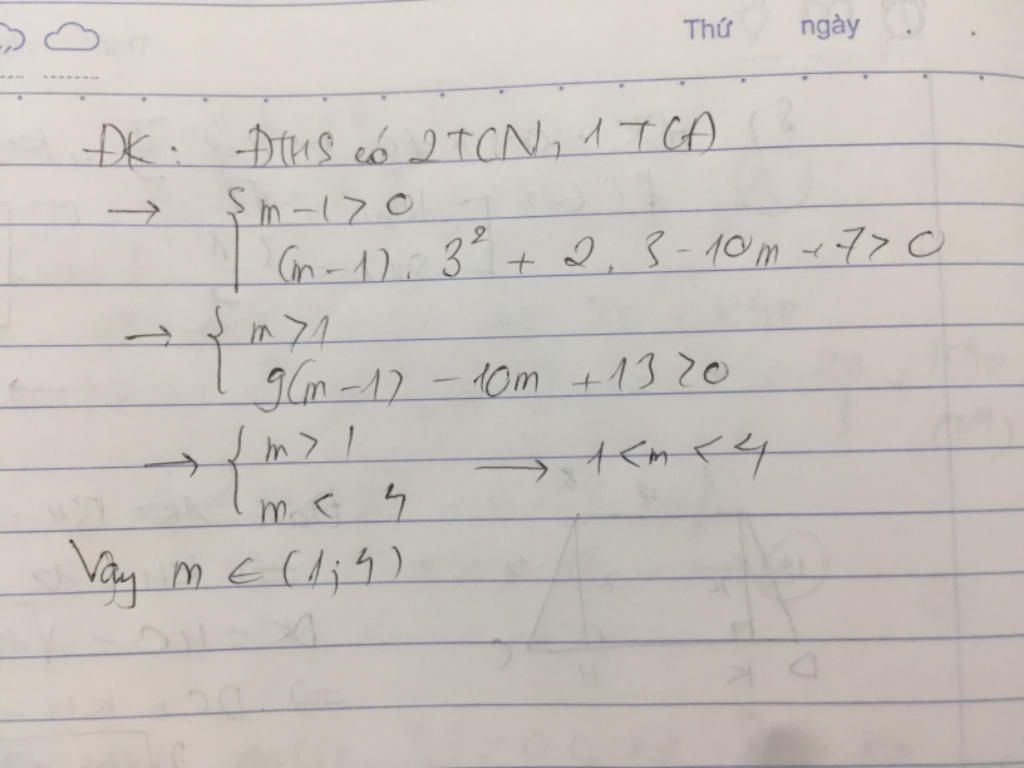 Thứ ngày
ĐK: ĐTHS có 2TCN, 1 TCĐ
→ { m - 1 > 0
(m - 1). 3² + 2. 3 - 10m + 7 > 0
→ { m > 1
9(m - 1) - 10m + 13 > 0
→ { m > 1 → 1 < m < 4
m < 4
Vậy m ∈ (1; 4)